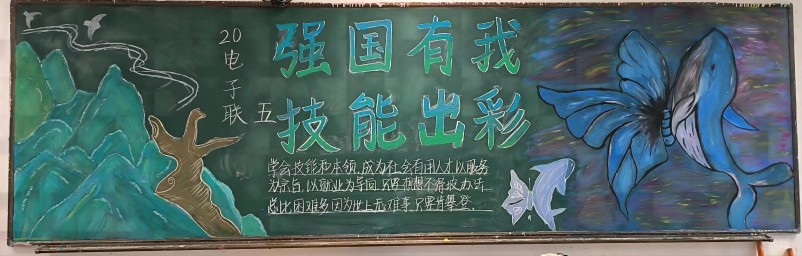 20电子联五
强国有我
技能出彩
学会技能和本领,成为社会有用人才以服务
为宗旨,以就业为导向,只要思想不滑坡办法
总比困难多因为世上无难事只要肯攀登.